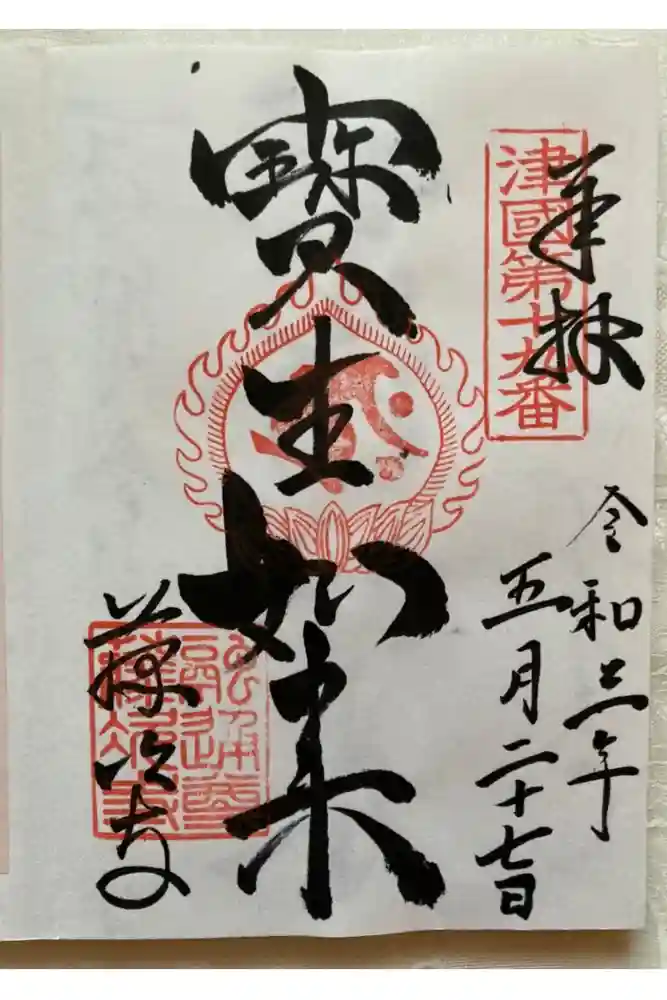 奉拝
津國第十九番
令和三年
五月二十七日
寶生如来
藤次寺